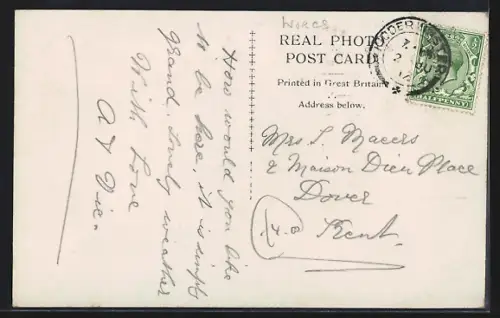 Wires
REAL PHOTO
POST CARD
Printed in Great Britain
Address below.
HALFPENNY
How would you like
to be here, it is simply
grand. Lovely weather
With Love
A & Vic.
Mrs S. Macers
2 Maison Dieu Place
Dover
Kent.